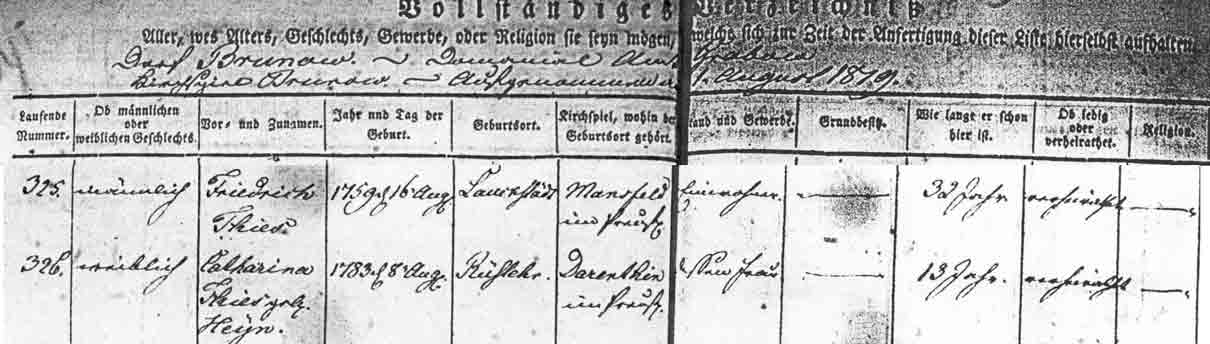 Vollständiges Verzeichniß
Aller, wes Alters, Geschlechts, Gewerbe, oder Religion sie seyn mögen, welche sich zur Zeit der Anfertigung dieser Liste hierselbst aufhalten
Dorf Brunow. Domanial Amt Grabow
Kirchspiel Brunow. Aufgenommen 1. August 1819.
Laufende Nummer. Ob männlichen oder weiblichen Geschlechts. Vor- und Zunamen. Jahr und Tag der Geburt. Geburtsort. Kirchspiel, wohin der Geburtsort gehört. Stand und Gewerbe. Grundbesitz. Wie lange er schon hier ist. Ob ledig oder verheirathet. Religion.
325. männlich Friedrich Thies. 1759 d 16 Aug Mansfeld im Preuß. Einwohner. 32 Jahr verheirathet
326. weiblich Catharina Thies geb. Heyn. 1783 d 8 Aug. im Preuß. Frau 13 Jahr. verheirathet